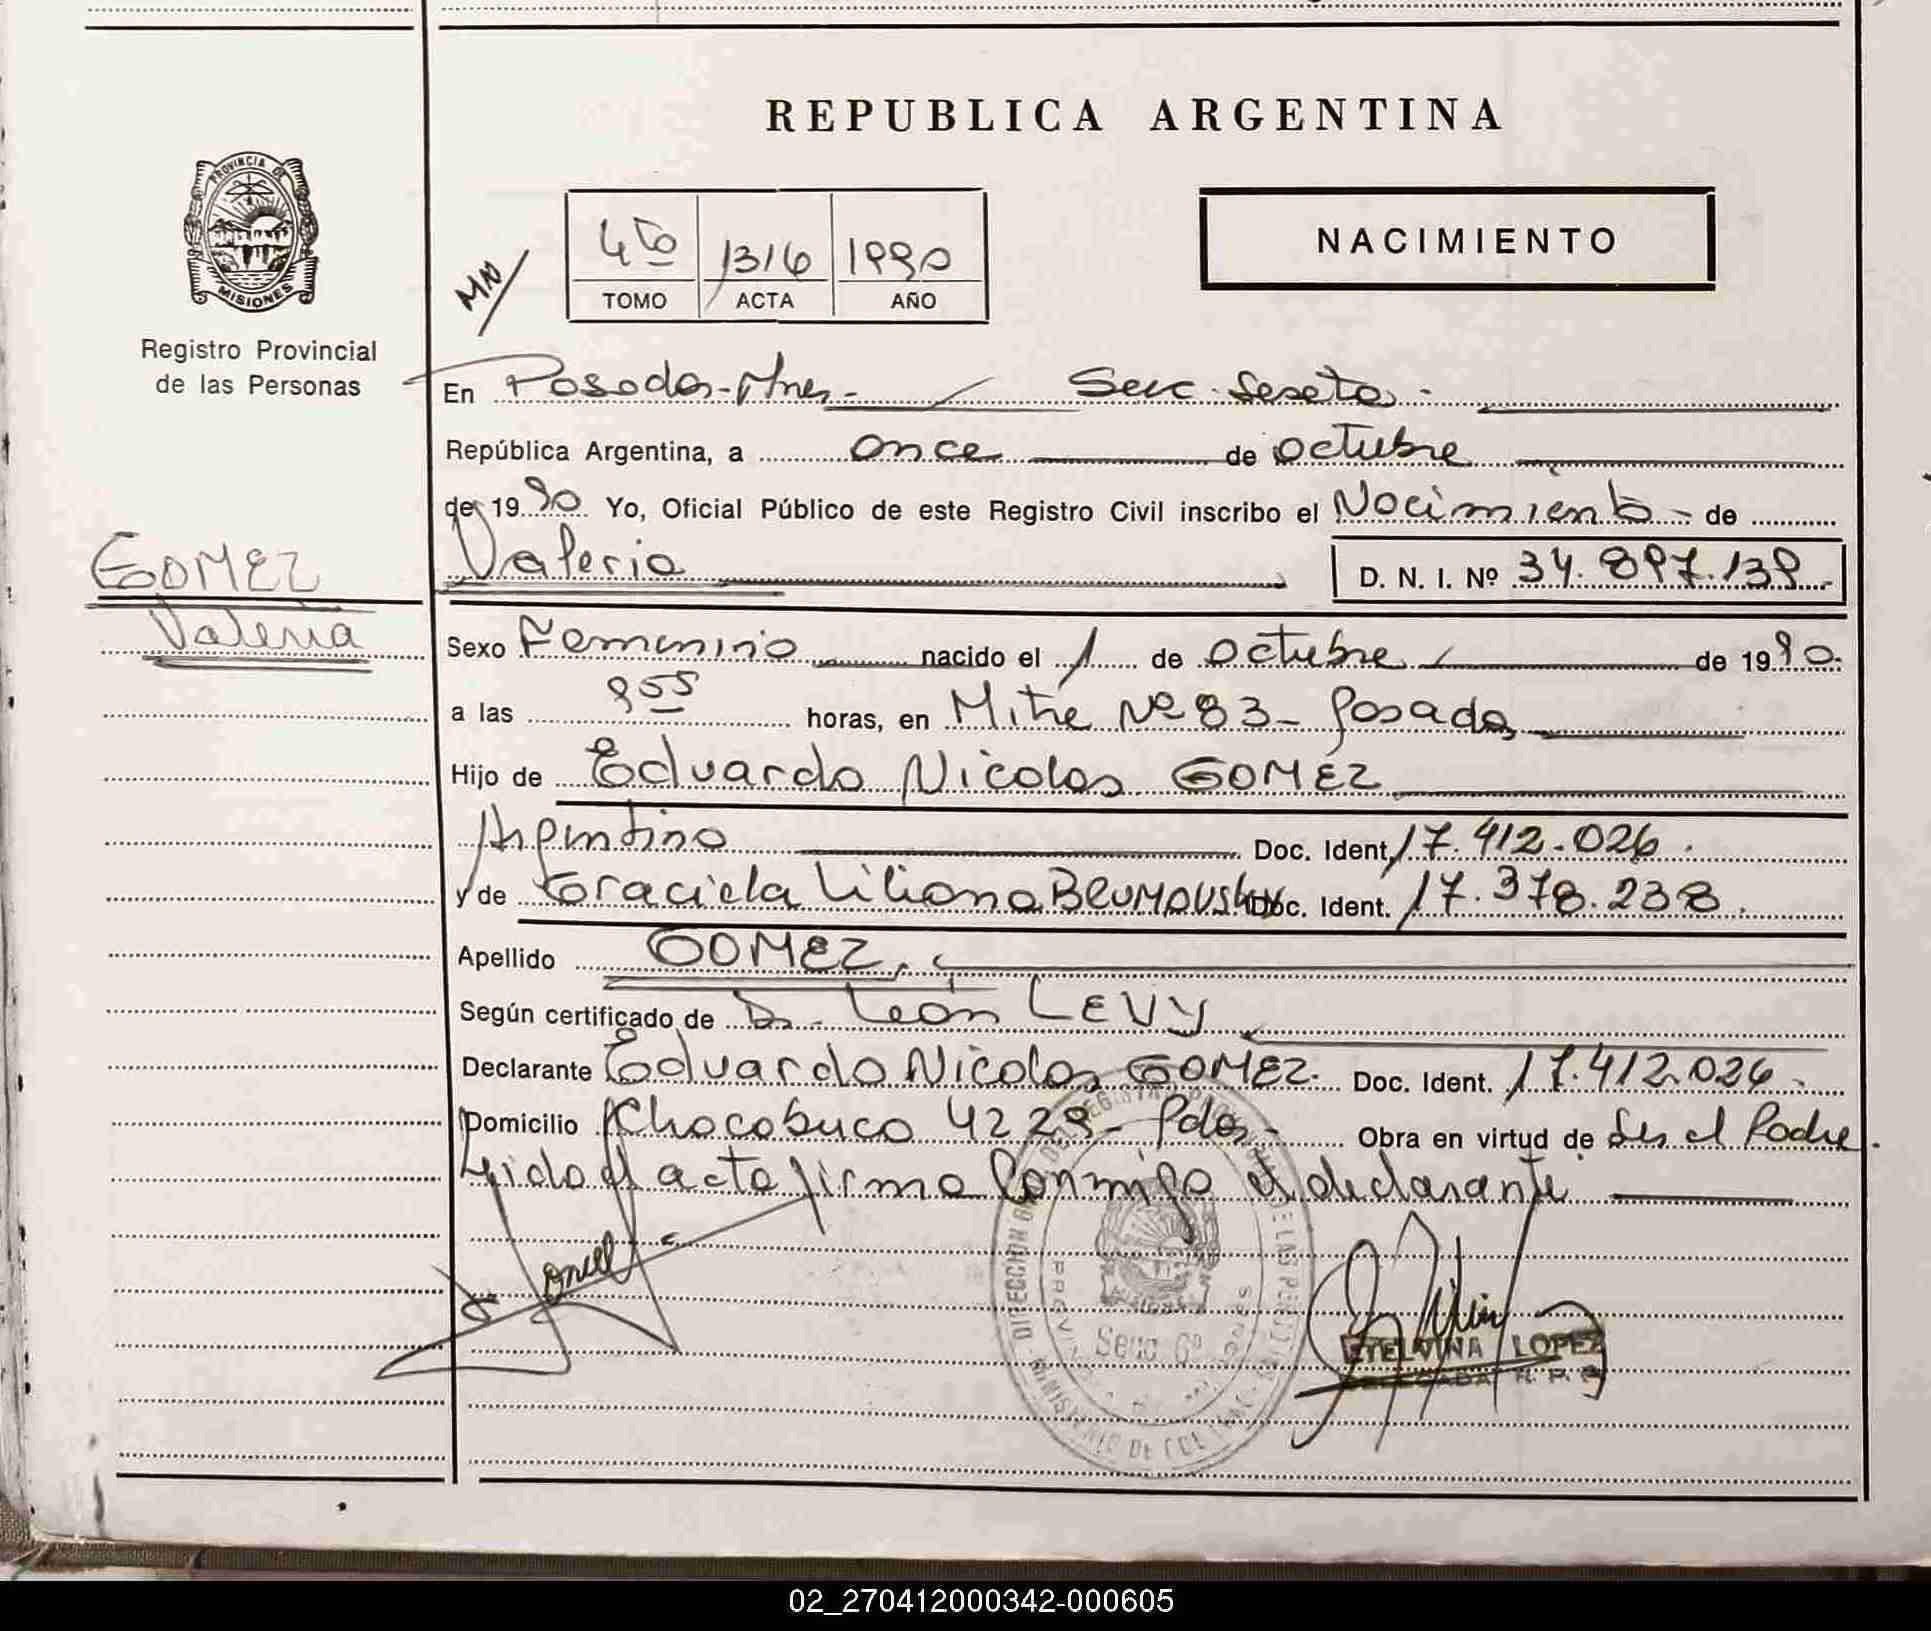 REPUBLICA ARGENTINA
PROVINCIA DE
MISIONES
Registro Provincial
de las Personas
MN/
4to 1316 1990
TOMO ACTA AÑO
NACIMIENTO
En Posadas-Mnes- Secc. Sexta.
República Argentina, a once de octubre
de 1990 Yo, Oficial Público de este Registro Civil inscribo el Nacimiento de
GOMEZ
Valeria
Valeria D. N. I. Nº 34.897.139
Sexo Femenino nacido el 1 de octubre de 1990
a las 955 horas, en Mitre Nº 83- Posadas
Hijo de Eduardo Nicolas GOMEZ
Argentino Doc. Ident. 17.412.026.
y de Graciela Liliana Doc. Ident. 17.378.238.
Apellido GOMEZ.
Según certificado de Dr. León LEVY
Declarante Eduardo Nicolas GOMEZ. Doc. Ident. 17.412.026.
Domicilio Chacabuco 4229- Pdas- Obra en virtud de Ser el Padre.
Leido el acta firma conmigo el declarante
Secc. 6ª
ETELVINA LOPEZ
DELEGADA R. P. P.
02_270412000342-000605